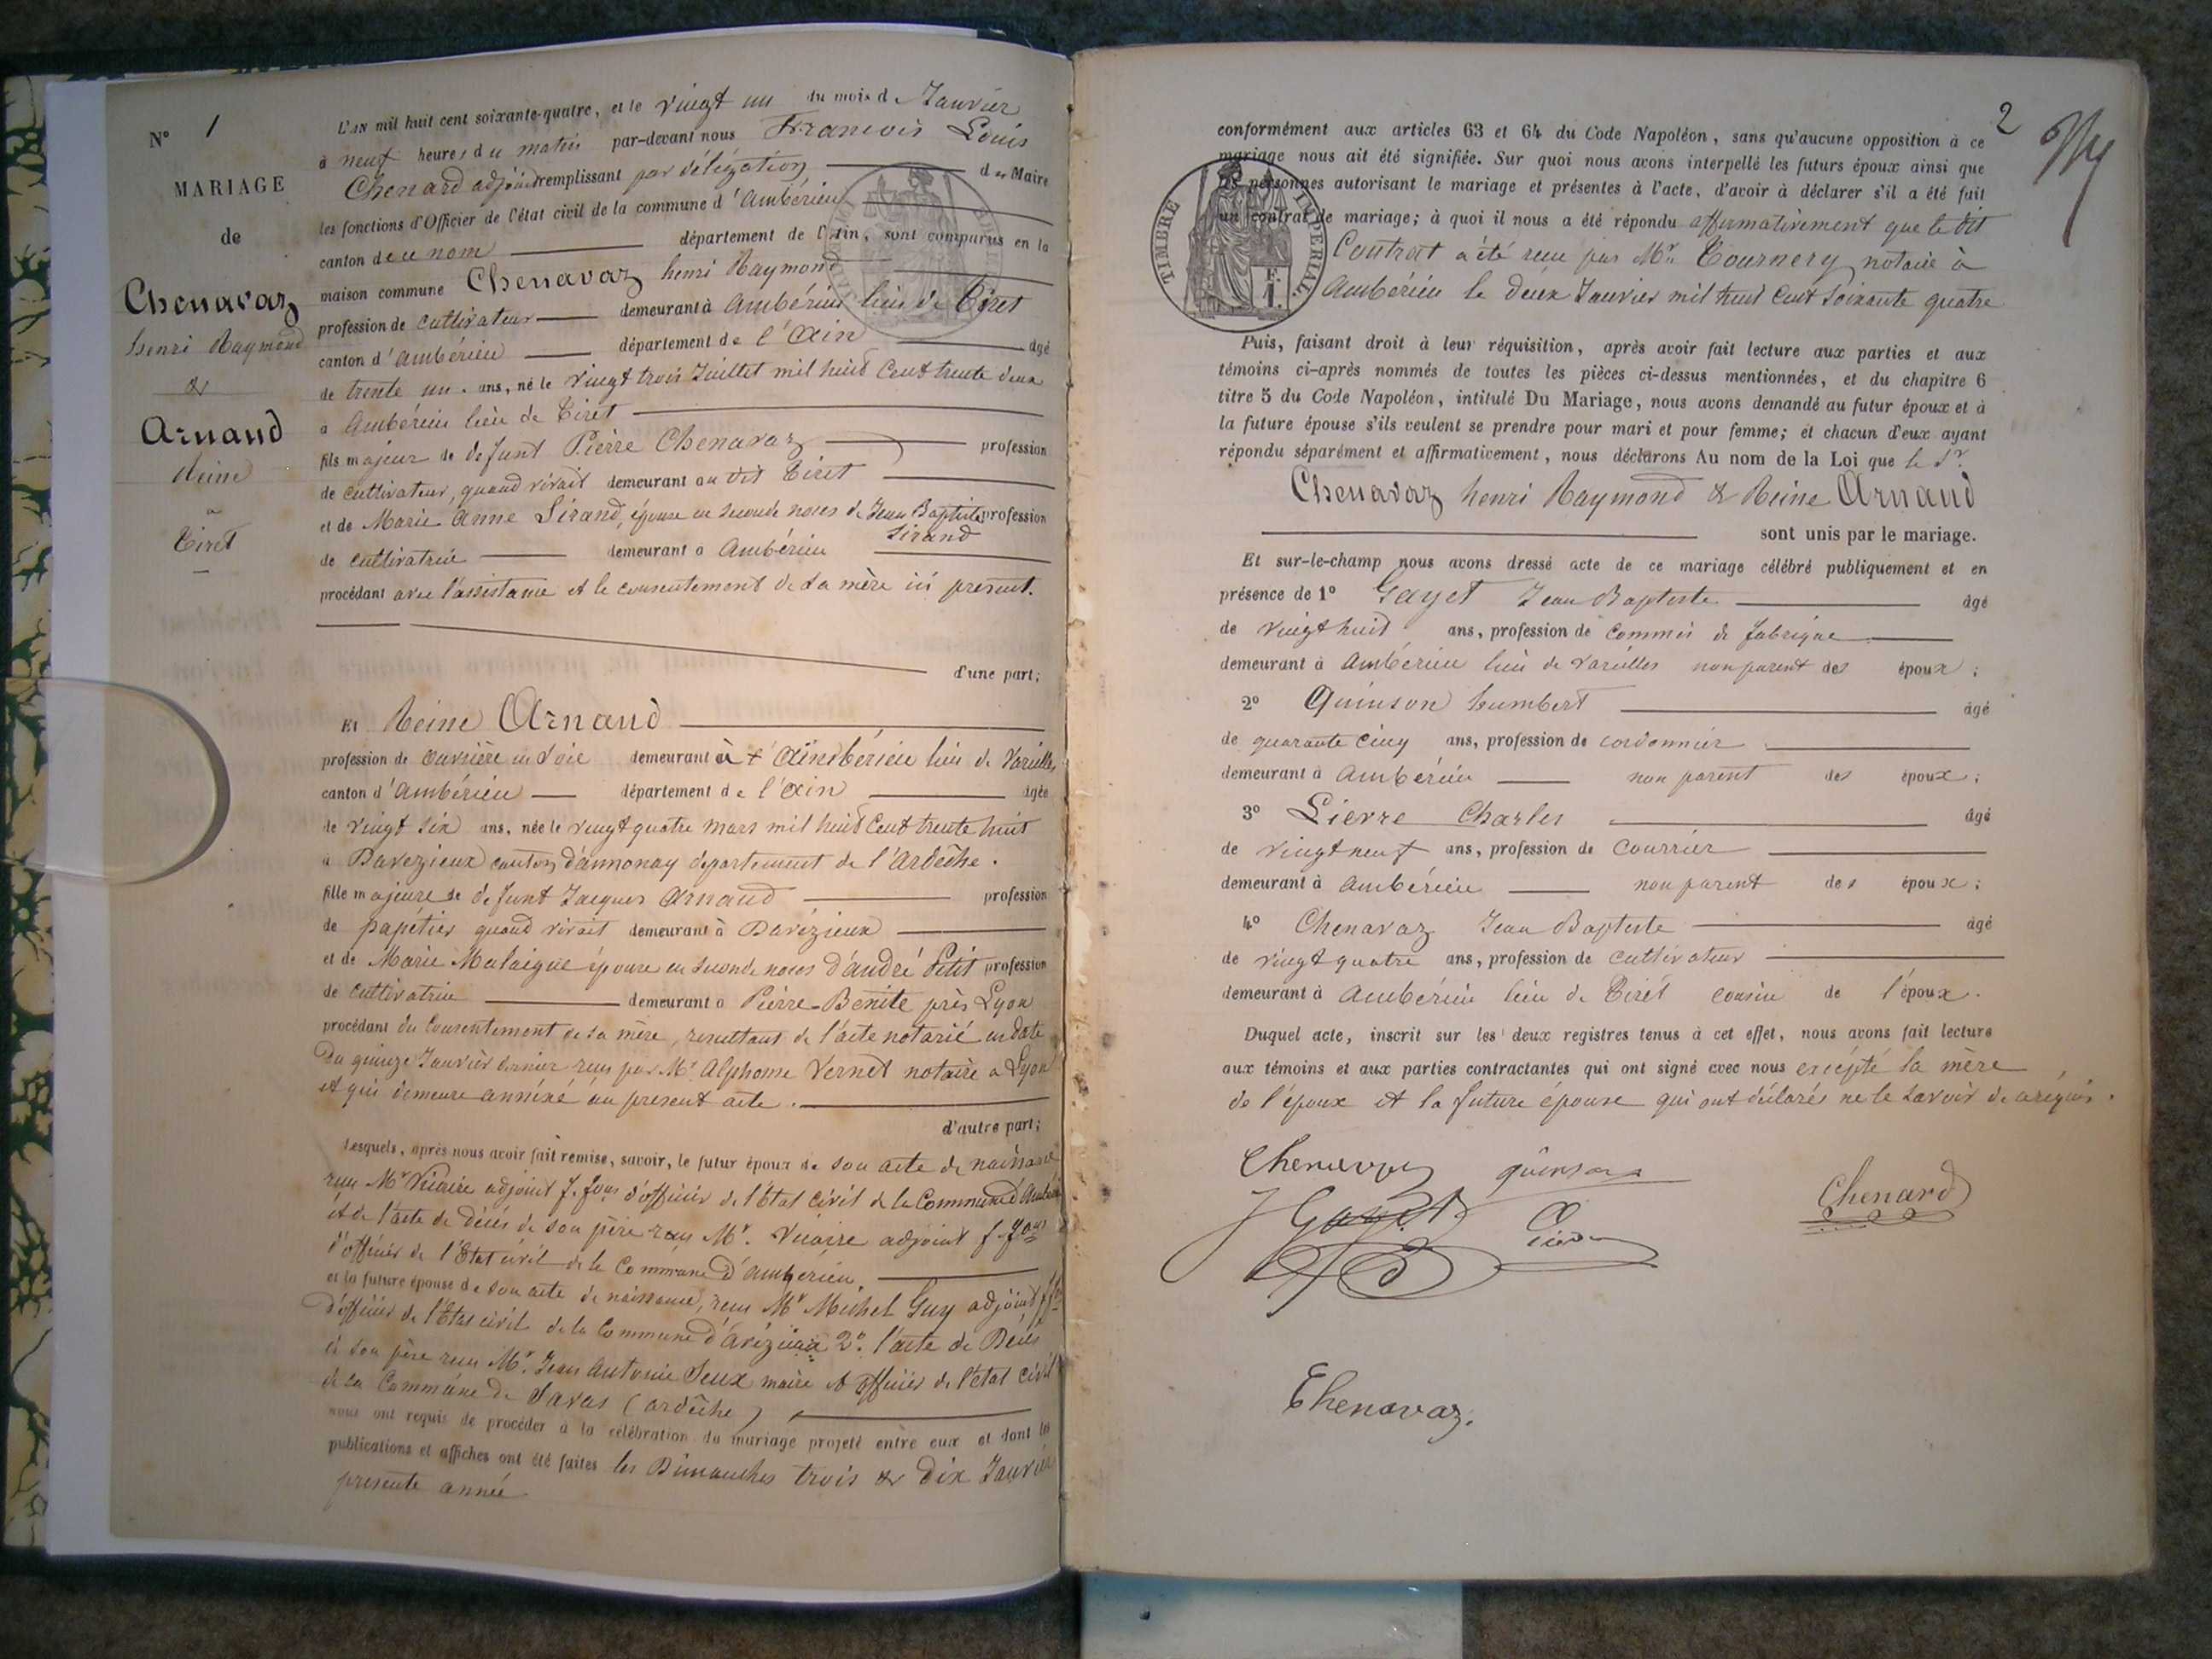 N° 1
MARIAGE
de
Chenavaz
henri Raymond
&
Arnand
Reine
a
Tiret
—
L'AN mil huit cent soixante-quatre, et le vingt un du mois de Janvier
à neuf heures du matin par-devant nous François Louis
Chenard adjoint remplissant par délégation du Maire
les fonctions d'Officier de l'état civil de la commune d'Ambérieu
canton de ce nom département de l'Ain, sont comparus en la
maison commune Chenavaz henri Raymond
profession de cultivateur demeurant à Ambérieu lieu de Tiret
canton d'Ambérieu département de l'Ain âgé
de trente un ans, né le vingt trois Juillet mil huit Cent trente deux
à Ambérieu lieu de Tiret
fils majeur de defunt Pierre Chenavaz profession
de cultivateur, quand vivait demeurant au dit Tiret
et de Marie Anne Sirand, épouse en seconde noces de Jean Baptiste profession
Sirand
de cultivatrice demeurant à Ambérieu
procédant avec l'assistance et le consentement de sa mère ici present.
d'une part;
Et Reine Arnand
profession de ouvrière en soie demeurant à Ambérieu lieu de Vareilles
canton d'Ambérieu département de l'Ain âgée
de vingt six ans, née le vingt quatre mars mil huit Cent trente huit
à Davezieux canton d'annonay département de l'ardêche.
fille majeure de defunt Jacques Arnand profession
de papétier quand vivait demeurant à Davézieux
et de Marie Malaigue épouse en seconde noces d'andré Petit profession
de cultivatrice demeurant à Pierre-Benite près Lyon
procédant du Consentement de sa mère, resultant de l'acte notarié en date
du quinze Janvier dernier reçu par Mr Alphonse Vernet notaire a Lyon
et qui demeure annéxé au present acte.
d'autre part;
Lesquels, après nous avoir fait remise, savoir, le futur époux de son acte de naissance
reçu Mr Vicaire adjoint f. fons d'officier de l'Etat civil de la Commune d'Ambérieu
et de l'acte de décés de son père reçu Mr. Vicaire adjoint f. fons
d'officier de l'Etat civil de la Commune d'ambérieu.
et la future épouse de son acte de naissance, reçu Mr Michel Guy adjoint f. fons
d'officier de l'Etat civil de la Commune d'avézieux 2° l'acte de Décés
de son père reçu Mr. Jean Antoine Seux maire & officier de l'état civil
de la Commune de Savas (ardêche)
nous ont requis de procéder à la célébration du mariage projeté entre eux et dont les
publications et affiches ont été faites les Dimanches trois & dix Janvier
presente année
2
conformément aux articles 63 et 64 du Code Napoléon, sans qu'aucune opposition à ce
mariage nous ait été signifiée. Sur quoi nous avons interpellé les futurs époux ainsi que
les personnes autorisant le mariage et présentes à l'acte, d'avoir à déclarer s'il a été fait
un contrat de mariage; à quoi il nous a été répondu affirmativement que le dit
Contrat a été reçu par Mr Tournery notaire à
Ambérieu le deux Janvier mil huit cent soixante quatre
TIMBRE IMPERIAL
1 F.
Puis, faisant droit à leur réquisition, après avoir fait lecture aux parties et aux
témoins ci-après nommés de toutes les pièces ci-dessus mentionnées, et du chapitre 6
titre 5 du Code Napoléon, intitulé Du Mariage, nous avons demandé au futur époux et à
la future épouse s'ils veulent se prendre pour mari et pour femme; et chacun d'eux ayant
répondu séparément et affirmativement, nous déclarons Au nom de la Loi que le Sr.
Chenavaz henri Raymond & Reine Arnand
sont unis par le mariage.
Et sur-le-champ nous avons dressé acte de ce mariage célébré publiquement et en
présence de 1° Gayet Jean Baptiste âgé
de vingt huit ans, profession de commis de fabrique
demeurant à Ambérieu lieu de Vareilles non parent des époux;
2° Quinson humbert âgé
de quarante cinq ans, profession de cordonnier
demeurant à Ambérieu non parent des époux;
3° Lievre Charles âgé
de vingt neuf ans, profession de courrier
demeurant à Ambérieu non parent des époux;
4° Chenavaz Jean Baptiste âgé
de vingt quatre ans, profession de cultivateur
demeurant à Ambérieu lieu de Tiret cousin de l'époux.
Duquel acte, inscrit sur les deux registres tenus à cet effet, nous avons fait lecture
aux témoins et aux parties contractantes qui ont signé avec nous excépté la mère
de l'époux et la future épouse qui ont déclarés ne le savoir de ce réquis.
Chenavaz quinson
J Gayet
Chenard
Chenavaz.